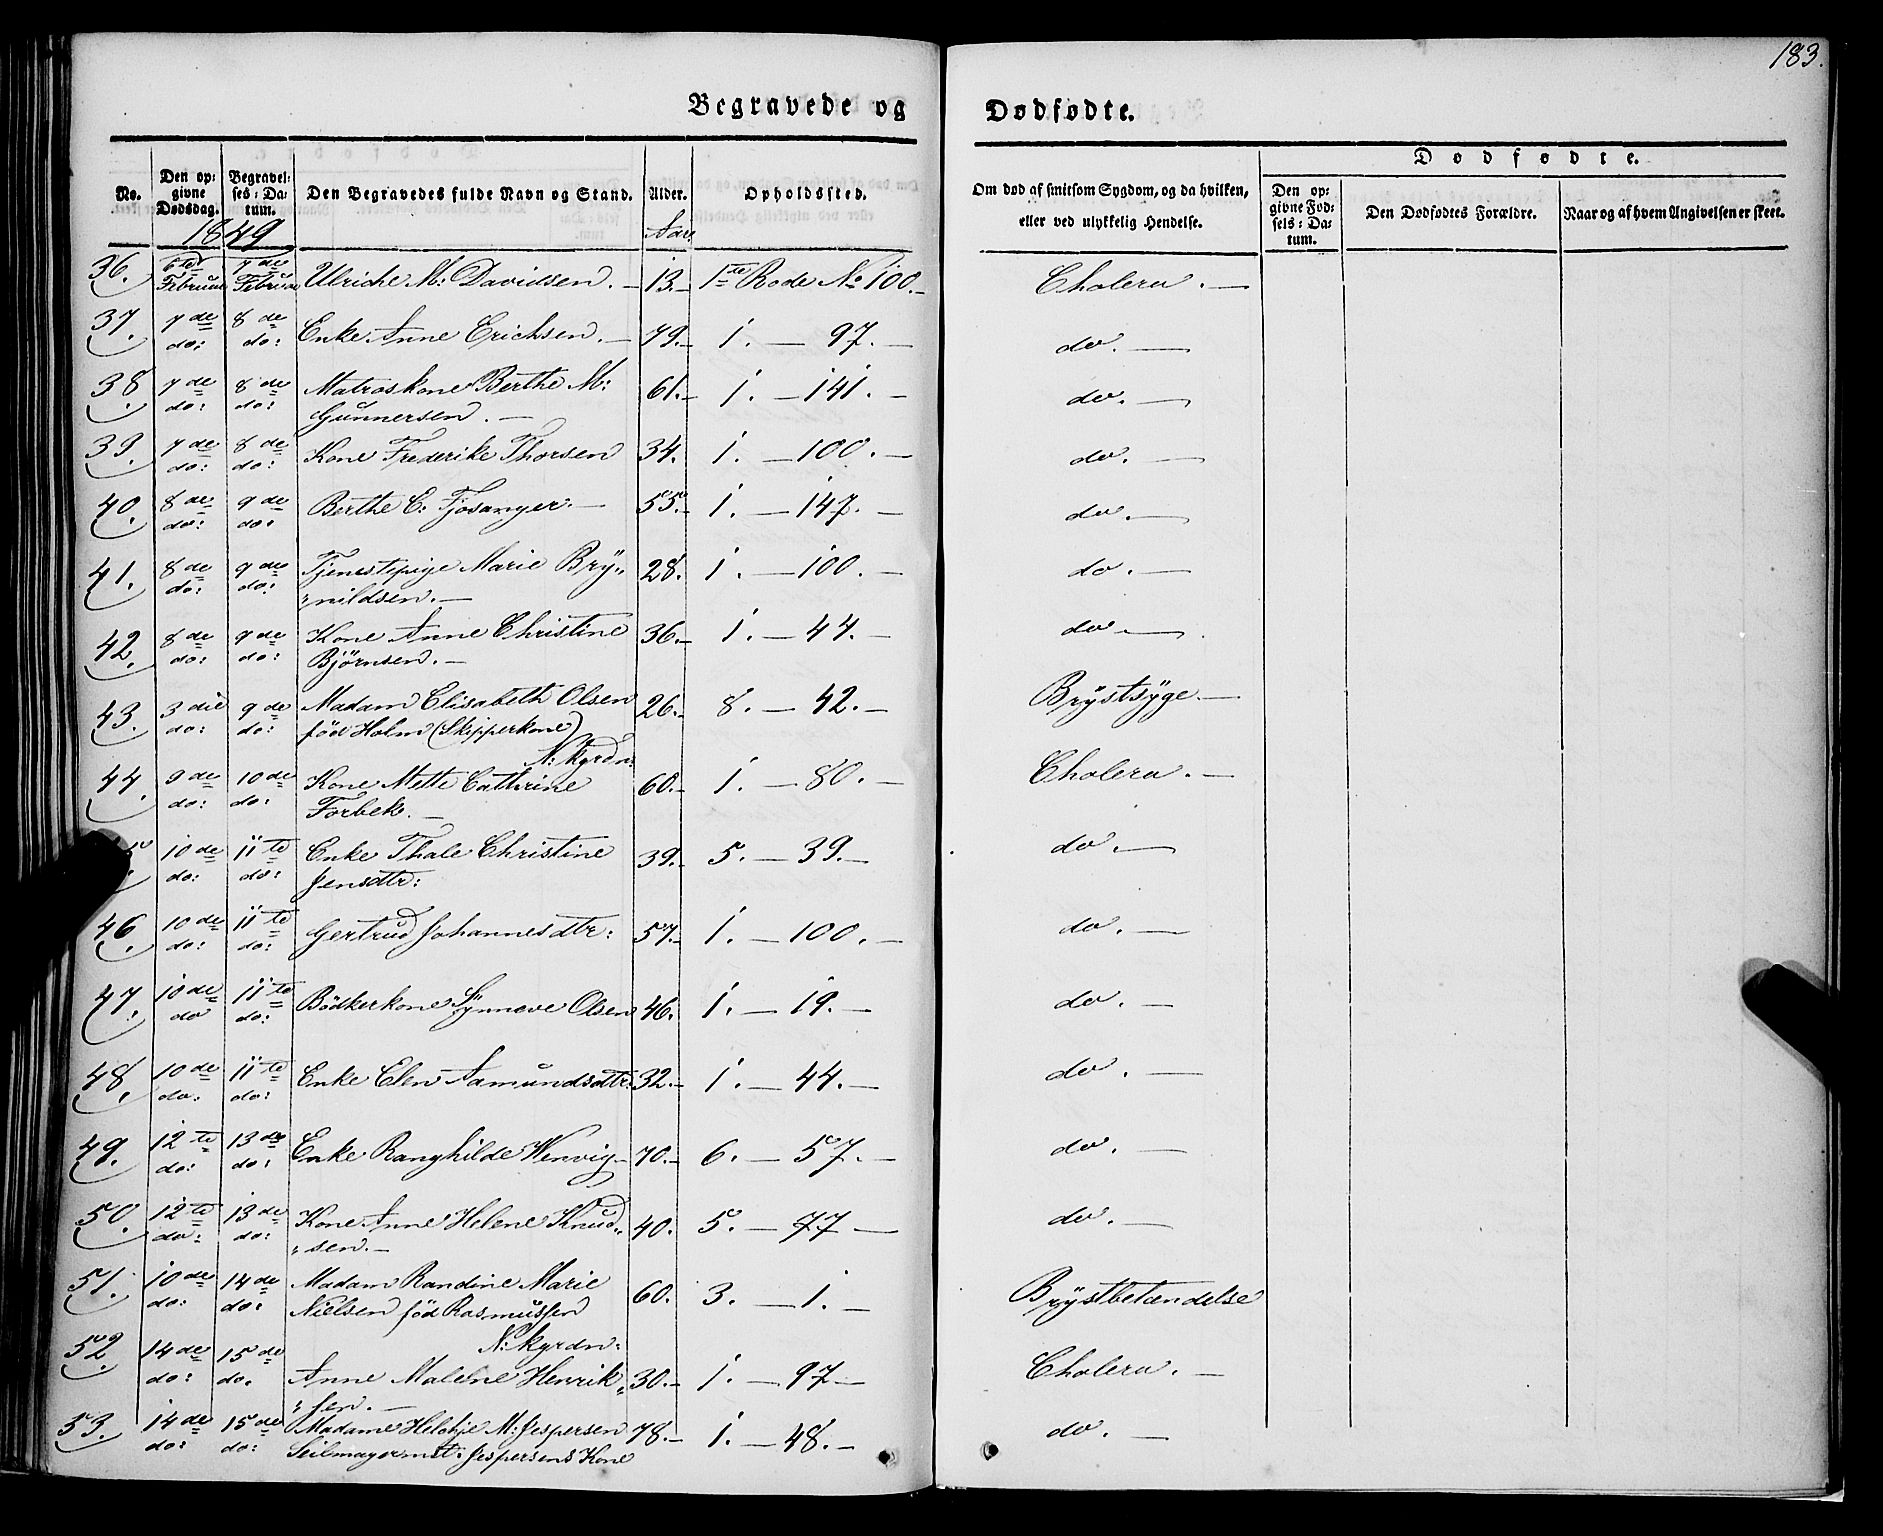 183.
Begravede og Dødfødte.
Dødfødte.
No.
Den op-
givne
Dødsdag.
Begravel-
ses-Da-
tum.
Den Begravedes fulde Navn og Stand.
Alder.
Opholdssted.
Om død af smitsom Sygdom, og da hvilken,
eller ved ulykkelig Hendelse.
Den op-
givne Fød-
sels-Da-
tum.
Den Dødfødtes Forældre.
Naar og af hvem Angivelsen er skeet.
1849
Aar
36. 6te Februar 7de Februar Ulriche M: Davidsen. 13. 1te Rode No 100. Cholera.
37. 7de do: 8de do: Enke Anne Erichsen. 79. 1. — 97. do.
38. 7de do: 8de do: Matroskone Berthe M: 61. 1. — 141. do.
Gunnersen.
39. 7de do: 8de do: Kone Frederike Thorsen 34. 1. — 100. do.
40. 8de do: 9de do: Berthe C: Fjøsanger. 55. 1. — 147. do.
41. 8de do: 9de do: Tjenestepige Marie Brÿ„ 28. 1. — 100. do.
„nildsen.
42. 8de do: 9de do: Kone Anne Christine 36. 1. — 44. do
Bjørnsen.
43. 3die do: 9de do: Madam Elisabeth Olsen 26. 8. — 42. Brÿstsÿge.
fød Holm (Skipperkone)
N: Kyrdn:
44. 9de do: 10de do: Kone Mette Cathrine 60. 1. — 80. Cholera.
Forbek.
5 10de do: 11te do: Enke Thale Christine 39. 5. — 39. do.
Jensdtr:
46. 10de do: 11te do: Gertrud Johannesdtr: 57. 1. — 100. do.
47. 10de do 11te do: Bödkerkone Sÿnneve Olsen 46. 1. — 19. do.
48. 10de do. 11te do: Enke Elen Aamundsdtr: 32. 1. — 44. do.
49. 12te do: 13de do: Enke Ranghilde Wenvig 70. 6. — 57. do.
50. 12te do: 13de do: Kone Anne Helene Knud„ 40. 5. — 77 do.
„sen.
51. 10de do: 14de do: Madam Randine Marie 60. 3. — 1. Brÿstbetændelse
Nielsen fød Rasmussen
N: Kyrdn:
52. 14de do: 15de do. Anne Malene Henrik„ 30. 1. — 97 Cholera.
„sen.
53. 14de do: 15de do: Madame Helchje M: Jespersen 78. 1. — 48. do.
Seilmagermst: Jespersens Kone